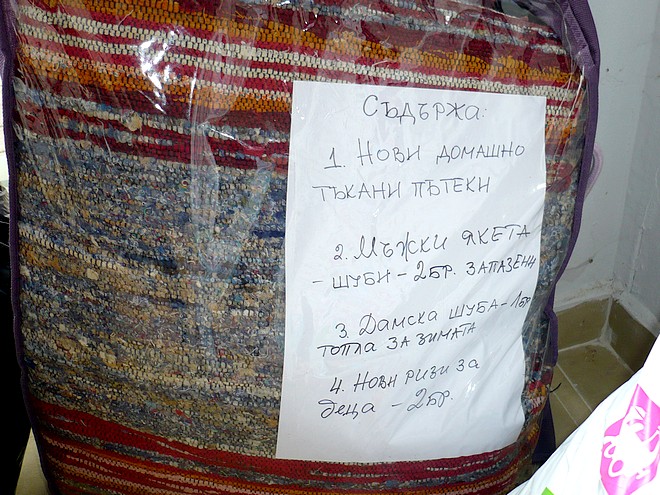 СЪДЪРЖА:
1. НОВИ ДОМАШНО
ТЪКАНИ ПЪТЕКИ
2. МЪЖКИ ЯКЕТА
- ШУБИ - 2БР. ЗАПАЗЕНИ
3. ДАМСКА ШУБА - 1БР
ТОПЛА ЗА ЗИМАТА
4. НОВИ РИЗИ ЗА
ДЕЦА - 2БР.